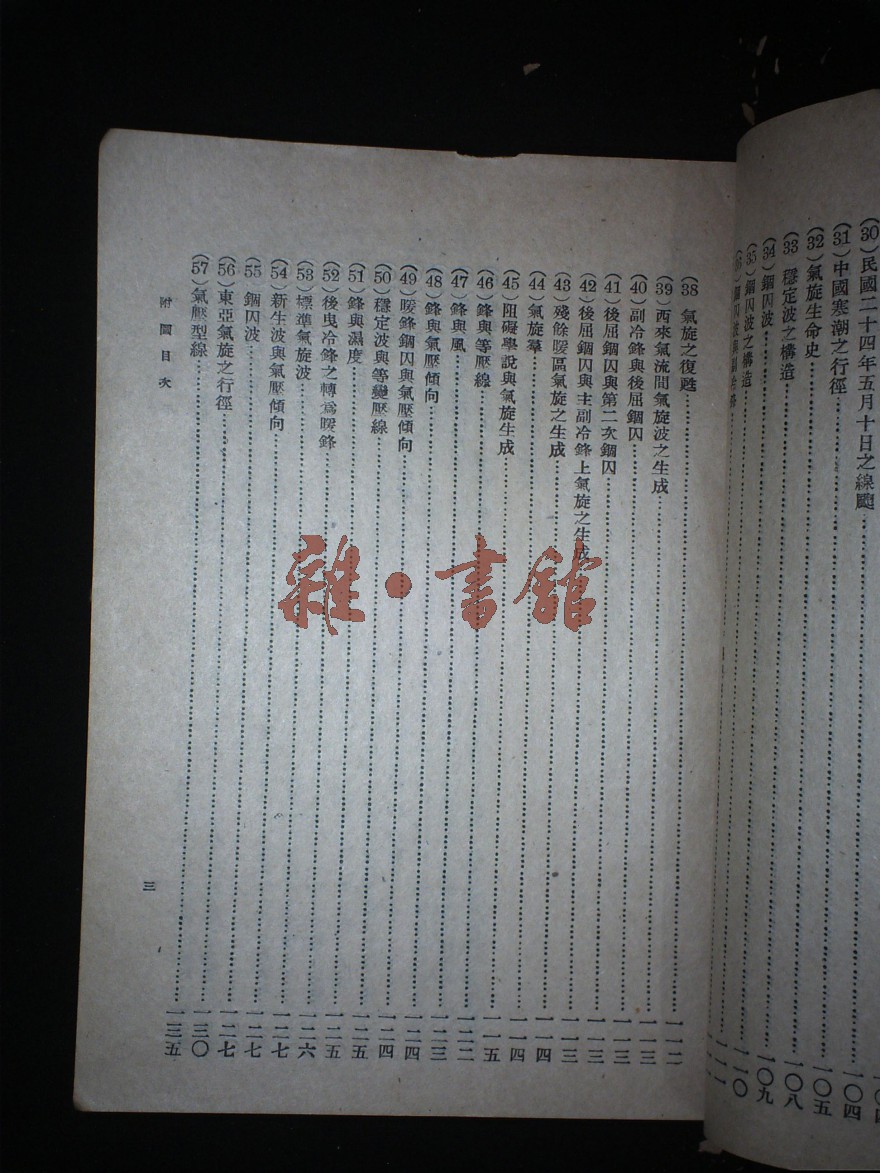 (30) 民國二十四年五月十日之線颮
(31) 中國寒潮之行徑……一〇四
(32) 氣旋生命史……一〇五
(33) 穩定波之構造……一〇八
(34) 錮囚波……一〇九
(35) 錮囚波之構造……一一〇
錮囚波與副冷鋒
(38) 氣旋之復甦……一一二
(39) 西來氣流間氣旋波之生成……一一三
(40) 副冷鋒與後屈錮囚……一一三
(41) 後屈錮囚與第二次錮囚……一一三
(42) 後屈錮囚與主副冷鋒上氣旋之生成……一一三
(43) 殘餘暖區氣旋之生成……一一四
(44) 氣旋羣……一一四
(45) 阻礙學說與氣旋生成……一一五
(46) 鋒與等壓線……一二二
(47) 鋒與風……一二三
(48) 鋒與氣壓傾向……一二四
(49) 暖鋒錮囚與氣壓傾向……一二四
(50) 穩定波與等變壓線……一二五
(51) 鋒與濕度……一二五
(52) 後曳冷鋒之轉爲暖鋒……一二六
(53) 標準氣旋波……一二七
(54) 新生波與氣壓傾向……一二七
(55) 錮囚波……一二七
(56) 東亞氣旋之行徑……一三〇
(57) 氣壓型線……一三五
附圖目次
三
雜·書館